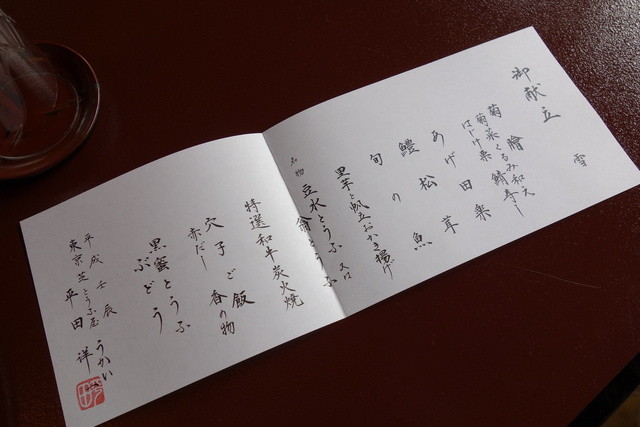 御献立
雪
菊菜くるみ和え
菊膾 鯖寿し
はじけ栗
あげ田楽
鱧松茸
旬の魚
里芋と帆立おかき揚げ
又は
名物 豆水とうふ
特選和牛炭火焼
穴子ご飯
赤だし 香の物
黒蜜とうふ
ぶどう
平成壬辰
東京芝とうふ屋うかい
平田 祥